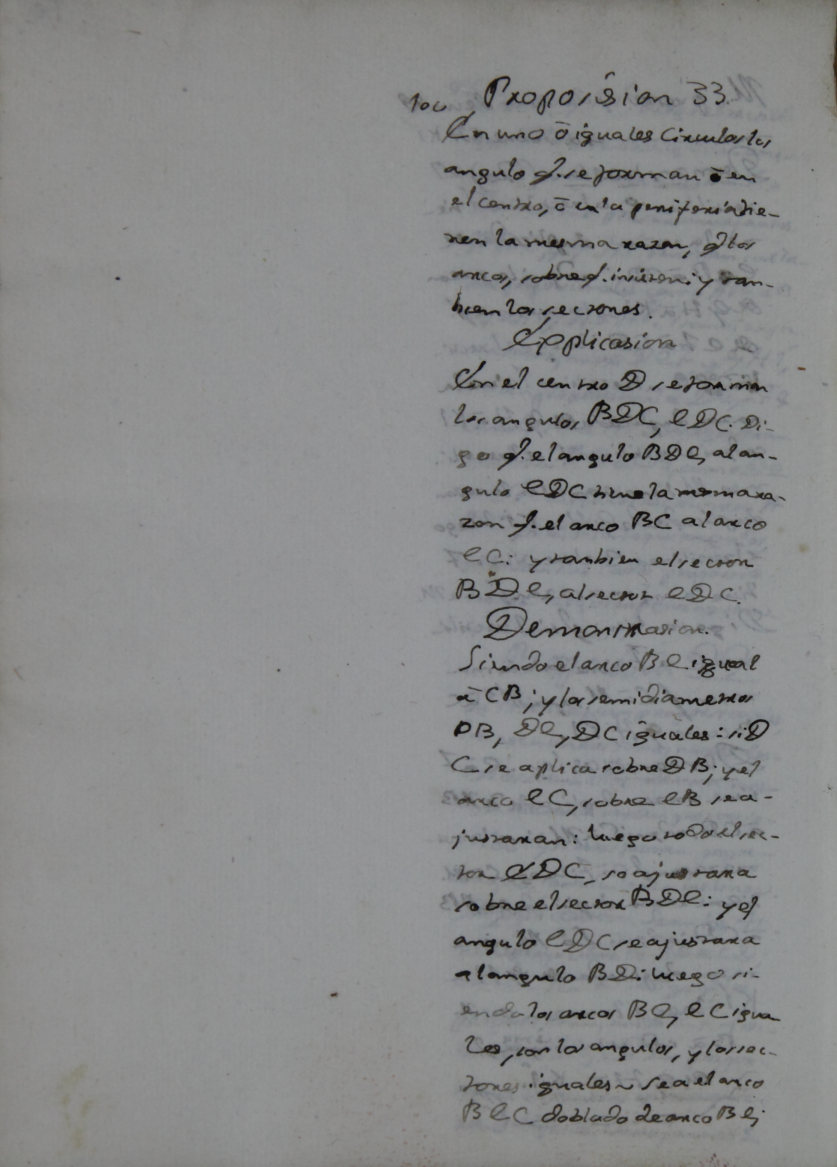 Proposision 33
En uno ō iguales Circulos los
angulo q. se forman ō en
el centro, ō en la periferia tie-
nen la mesma razon, q los
arcos, sobre q. insisten: y tan-
bien los sectores.
Esplicasion
En el centro D se forman
los angulos BDC, EDC. Di-
go q. el angulo BDE, al an-
gulo EDC tiene la mesma ra-
zon q. el arco BC al arco
EC: y tanbien el sector
BDE, al sector EDC.
Demonstrasion.
Siendo el arco BE igual
ā CB; y los semidiametros
DB, DE, DC iguales: si D
C se aplica sobre DB; y el
arco EC, sobre EB se a-
justaran: luego todo el sec-
tor EDC, se ajustara
sobre el sector BDE: y el
angulo EDC se ajustara
al angulo BD: luego si-
endo los arcos BE, EC igua
les, son los angulos, y los sec-
tores iguales sea el arco
BEC doblado de arco BE;